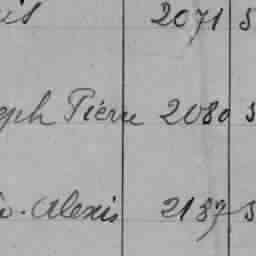 is 2071 5
eph Pierre 2080 5
o. Alexis 2187 5